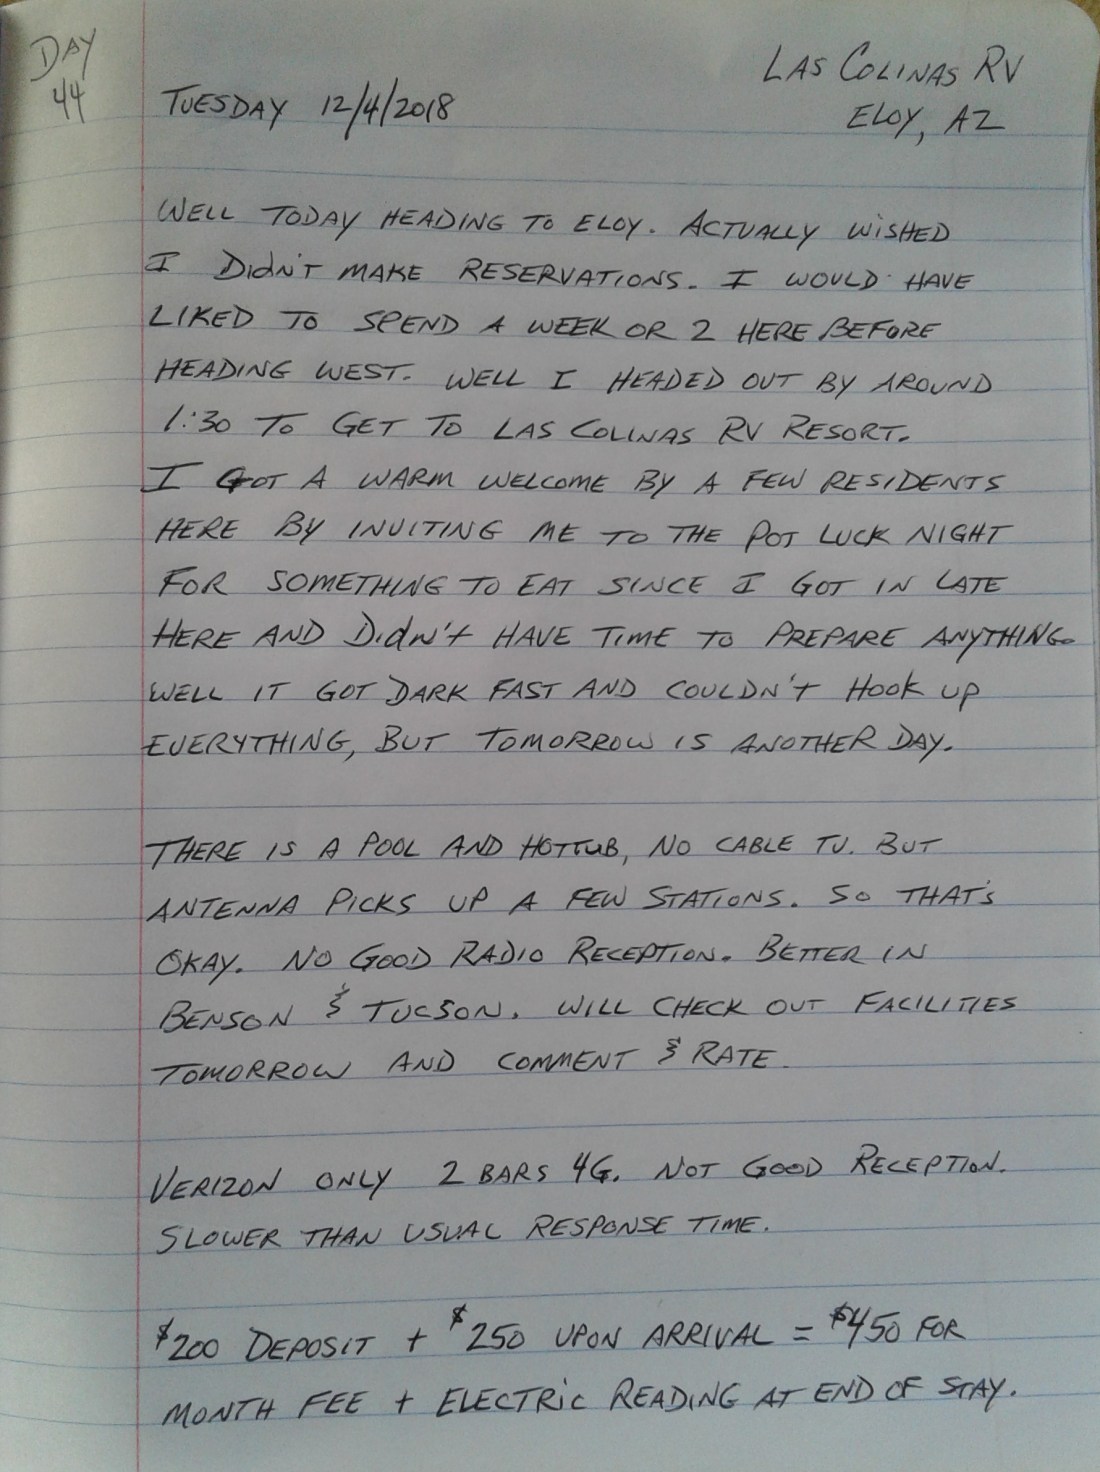 DAY
44
LAS COLINAS RV
TUESDAY 12/4/2018
ELOY, AZ
WELL TODAY HEADING TO ELOY. ACTUALLY WISHED
I DIDN'T MAKE RESERVATIONS. I WOULD HAVE
LIKED TO SPEND A WEEK OR 2 HERE BEFORE
HEADING WEST. WELL I HEADED OUT BY AROUND
1:30 TO GET TO LAS COLINAS RV RESORT.
I GOT A WARM WELCOME BY A FEW RESIDENTS
HERE BY INVITING ME TO THE POT LUCK NIGHT
FOR SOMETHING TO EAT SINCE I GOT IN LATE
HERE AND DIDN'T HAVE TIME TO PREPARE ANYTHING.
WELL IT GOT DARK FAST AND COULDN'T HOOK UP
EVERYTHING, BUT TOMORROW IS ANOTHER DAY.
THERE IS A POOL AND HOTTUB, NO CABLE TV. BUT
ANTENNA PICKS UP A FEW STATIONS. SO THAT'S
OKAY. NO GOOD RADIO RECEPTION. BETTER IN
BENSON & TUCSON. WILL CHECK OUT FACILITIES
TOMORROW AND COMMENT & RATE.
VERIZON ONLY 2 BARS 4G. NOT GOOD RECEPTION.
SLOWER THAN USUAL RESPONSE TIME.
$200 DEPOSIT + $250 UPON ARRIVAL = $450 FOR
MONTH FEE + ELECTRIC READING AT END OF STAY.